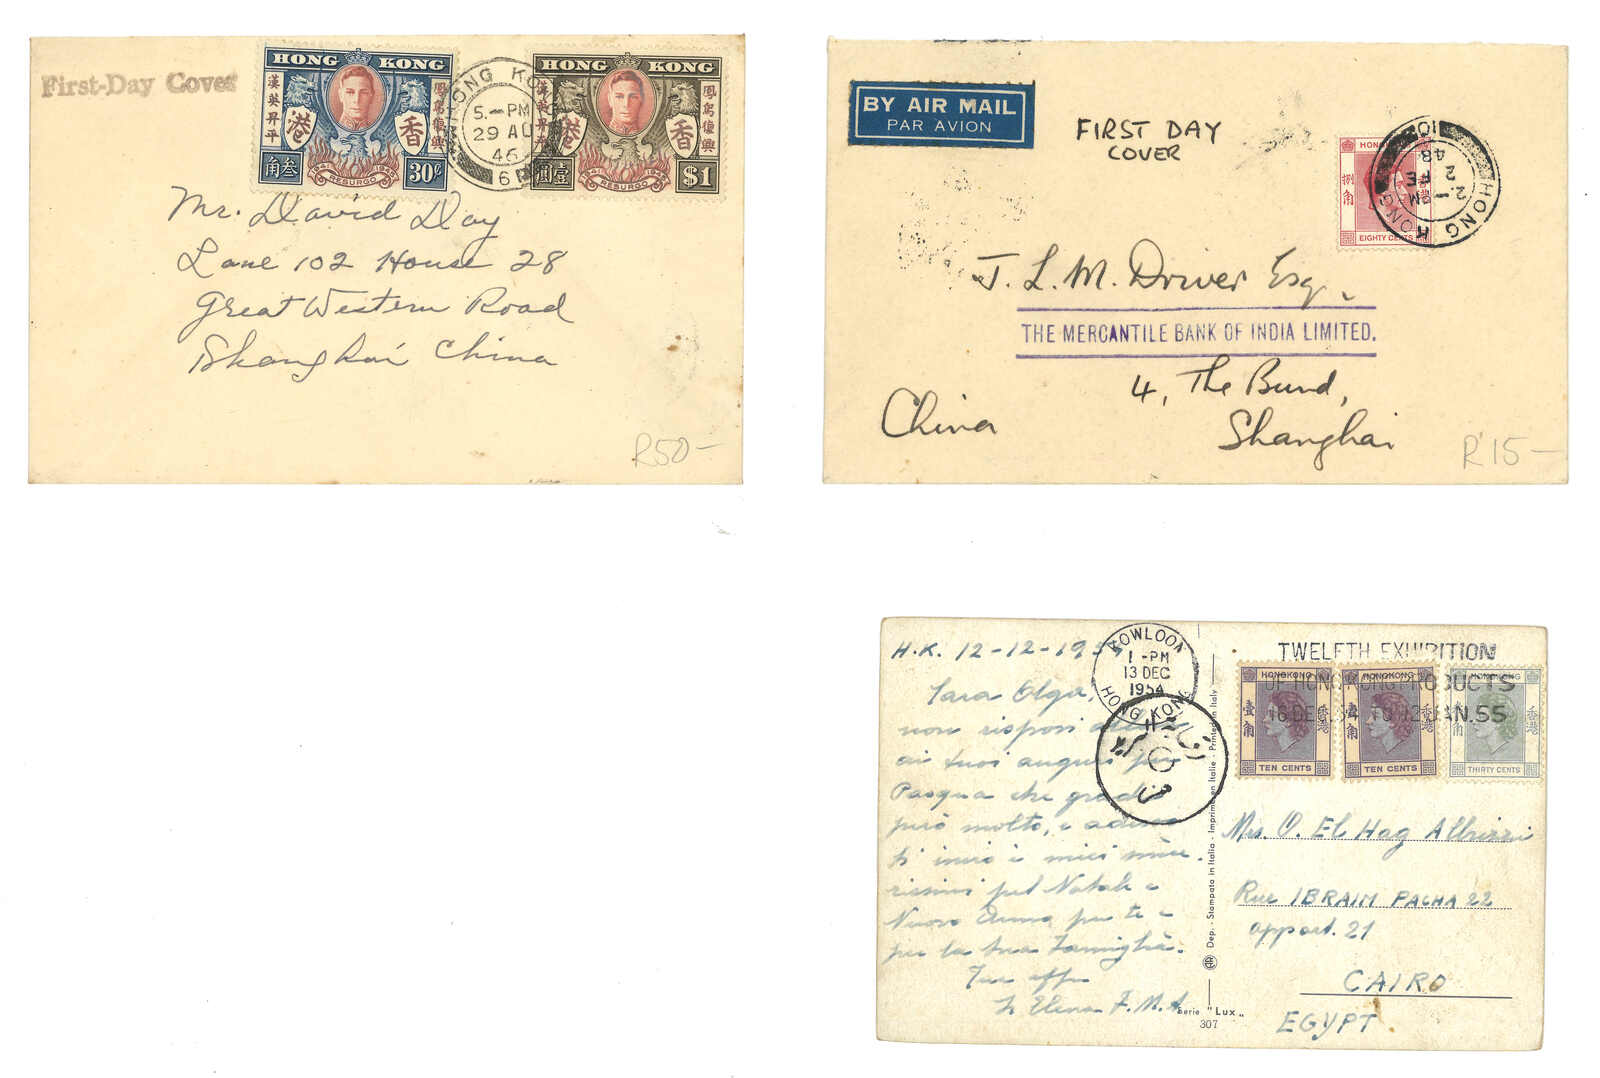 First-Day Cover
HONG KONG
漢英昇平
鳳鳥復興
港
香
角叁
30¢
1941 1945
RESURGO
HONG KONG
5.-PM
29 AU
46
HONG KONG
漢英昇平
鳳鳥復興
香
圓壹
$1
1941 1945
RESURGO
Mr. David Day
Lane 102 House 28
Great Western Road
Shanghai China
R50-
BY AIR MAIL
PAR AVION
FIRST DAY
COVER
HONG
捌角
EIGHTY CENTS
HONG KONG
2.-PM
2 FE
48
J. L. M. Driver Esq.,
THE MERCANTILE BANK OF INDIA LIMITED.
4, The Bund,
China
Shanghai
R15-
H.K. 12-12-1954
KOWLOON
1-PM
13 DEC
1954
HONG KONG
TWELFTH EXHIBITION
OF HONG KONG PRODUCTS
16 DEC. 54 TO 12 JAN. 55
HONGKONG
壹角
香港
TEN CENTS
HONGKONG
壹角
香港
TEN CENTS
HONGKONG
香港
THIRTY CENTS
Cara Olga,
non risposi
ai tuoi auguri per
Pasqua che gradii
però molto, e adesso
ti invio i miei
rissimi pel Natale e
Nuovo Anno per te e
per la tua famiglia.
Tua aff.
Elena F. M. A.
Dep. - Stampata in Italia - Imprimé en Italie - Printed in Italy
Serie "Lux"
307
Mrs. O. El Hag Albrizzi
Rue IBRAIM PACHA 22
appart. 21
CAIRO
EGYPT